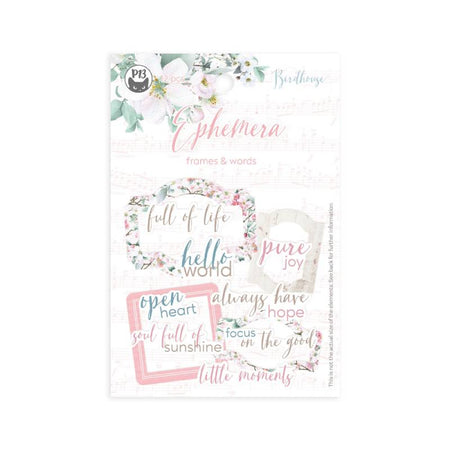 P13
Birdhouse
Ephemera
frames & words
full of life
hello
world
pure
joy
open
heart
always have
hope
soul full of
sunshine
focus
on the good
little moments
This is not the actual size of the elements. See back for further information.